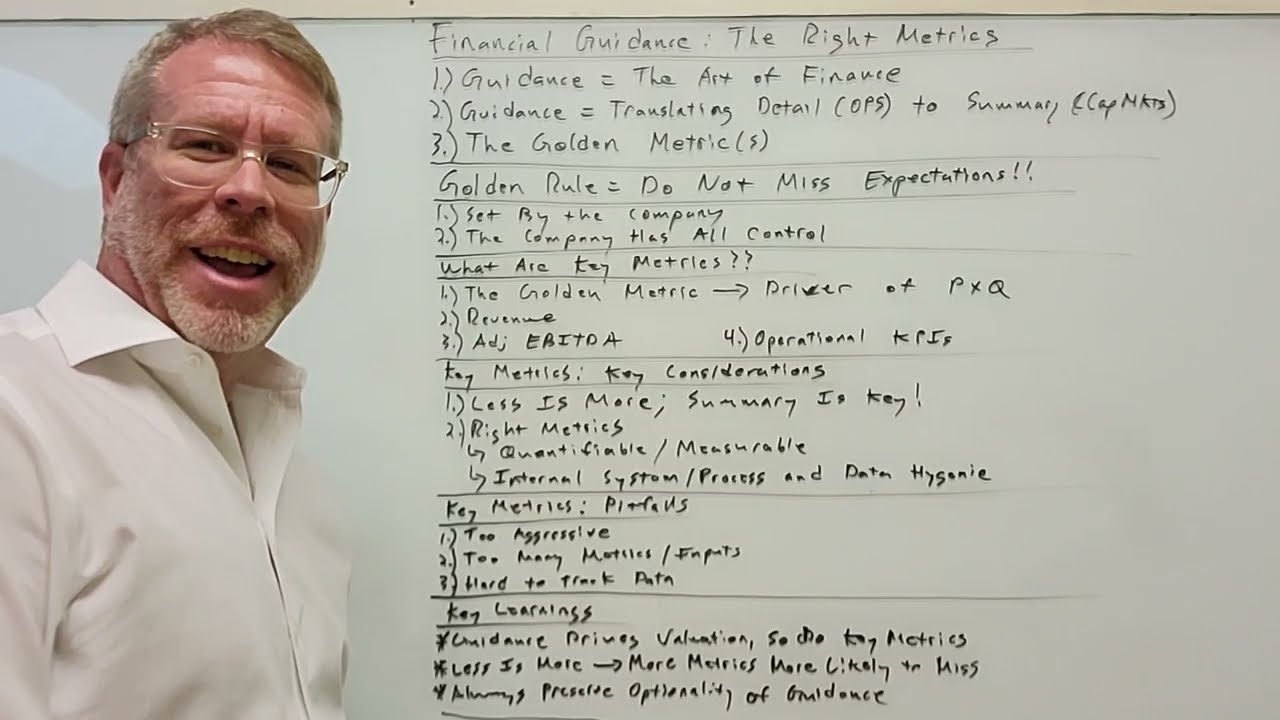 Financial Guidance: The Right Metrics
1.) Guidance = The Art of Finance
2.) Guidance = Translating Detail (OPS) to Summary (CapMkts)
3.) The Golden Metric(s)
Golden Rule = Do Not Miss Expectations!!
1.) Set By the Company
2.) The Company Has All Control
What Are Key Metrics??
1.) The Golden Metric → Driver of PxQ
2.) Revenue
3.) Adj EBITDA 4.) Operational KPIs
Key Metrics: Key Considerations
1.) Less Is More; Summary Is Key!
2.) Right Metrics
↳ Quantifiable/Measurable
↳ Internal System/Process and Data Hygenie
Key Metrics: Pitfalls
1.) Too Aggressive
2.) Too Many Metrics/Inputs
3.) Hard to Track Data
Key Learnings
*Guidance Drives Valuation, So Do Key Metrics
*Less Is More → More Metrics More Likely to Miss
*Always Preserve Optionality of Guidance